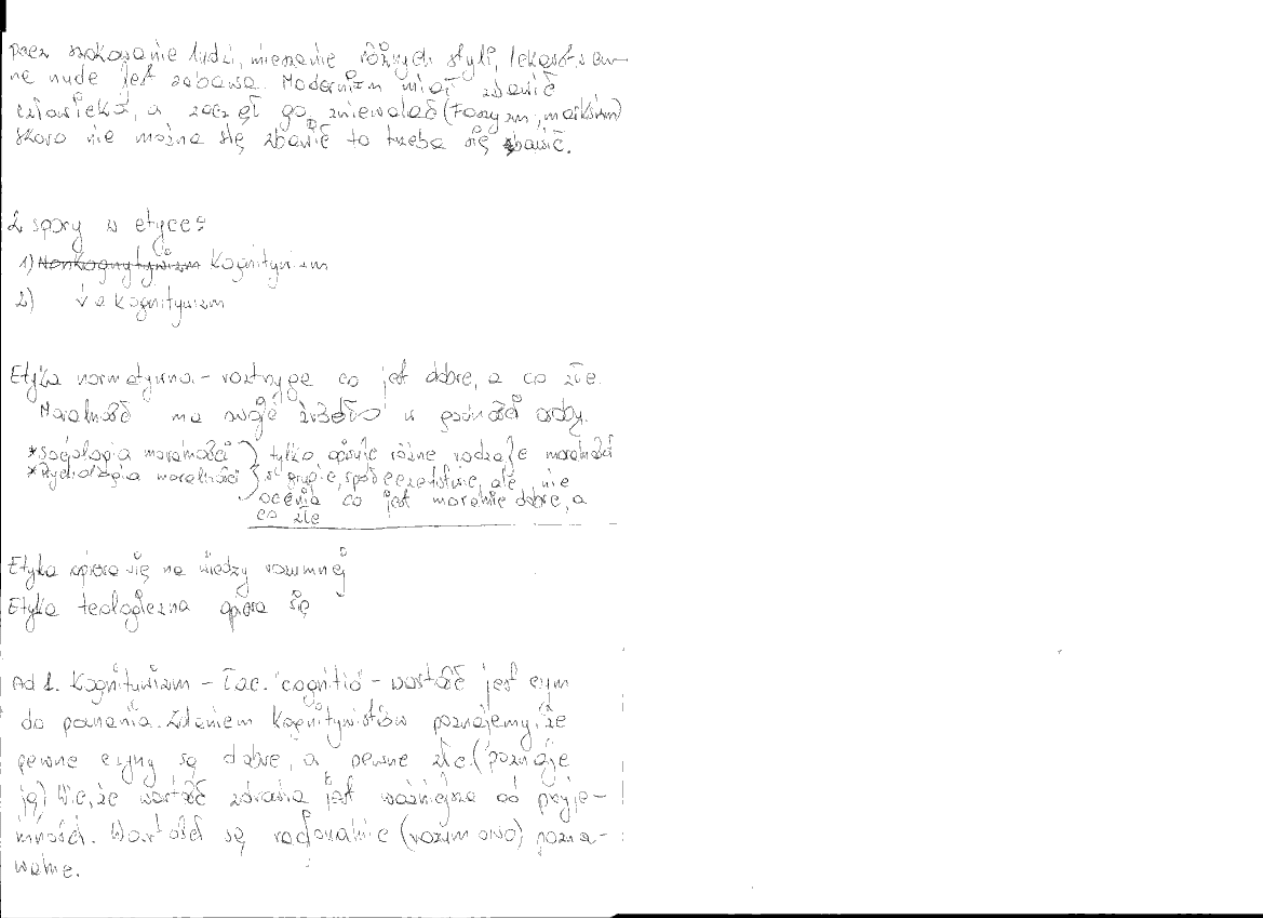 przez szokowanie ludzi, mieszanie różnych styli, lekarstwem
na nudę jest zabawa. Modernizm miał zbawić
człowieka, a zaczął go zniewalać (Faszyzm, marksizm)
skoro nie można się zbawić to trzeba się bawić.
2 spory w etyce:
1) Nonkognytywizm Kognitywizm
2) Kognitywizm
Etyka normatywna - roztrzyga co jest dobre, a co złe.
Moralność ma swoje źródło w godności osoby.
*Socjologia moralności } tylko opisuje różne rodzaje moralności
*Psychologia moralności } w grupie, społeczeństwie, ale nie
ocenia co jest moralnie dobre, a
co złe
Etyka opiera się na wiedzy rozumnej
Etyka teologiczna opiera się
Ad 1. Kognitywizm - łac. cognitio - wartość jest czym
do poznania. Zdaniem Kognitywistów poznajemy, że
pewne czyny są dobre, a pewne złe (poznaje
ją) Wie, że wartość zdrowia jest ważniejsza od przyje-
mności. Wartości są racjonalnie (rozumowo) pozna-
walne.